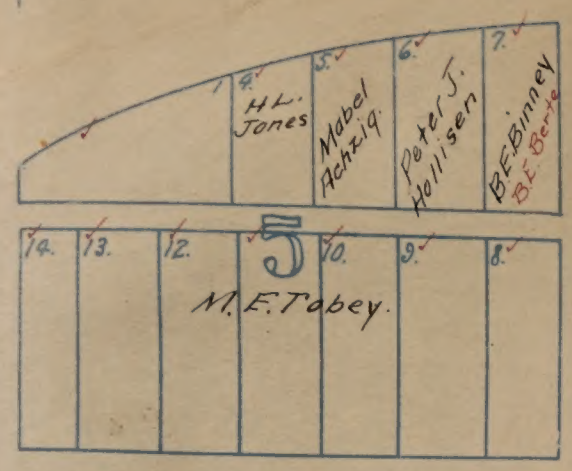 1
4.
H L.
Jones
5.
Mabel
Achzig.
6.
Peter J.
Hollisen
7.
B.E. Binney
B.E. Berte
5
14.
13.
12.
10.
9.
8.
M. E. Tobey.